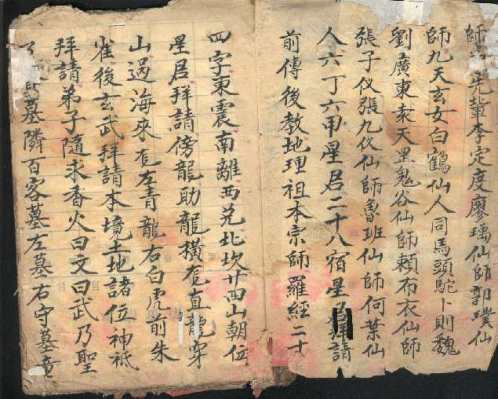 師 先輩李定度廖瑀仙師郭璞仙
師九天玄女白鶴仙人同馬頭駝卜則魏
劉廣東袁天罡鬼谷仙師賴布衣仙師
張子仪張九仪仙師魯班仙師何葉仙
人六丁六甲星君二十八宿星 拜請
前傳後教地理祖本宗師羅經二十
四字東震南離西兑北坎廿四山朝位
星居拜請傍龍助龍橫龍直龍穿
山過海來龍左青龍右白虎前朱
雀後玄武拜請本境土地諸位神祇
拜請弟子隨求香火曰文曰武乃聖
墓隣百客墓左墓右守墓童